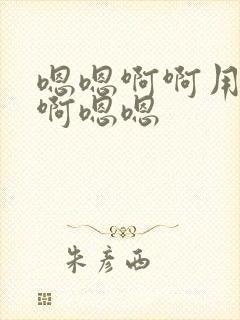 嗯嗯啊啊用
啊嗯嗯
朱彦西